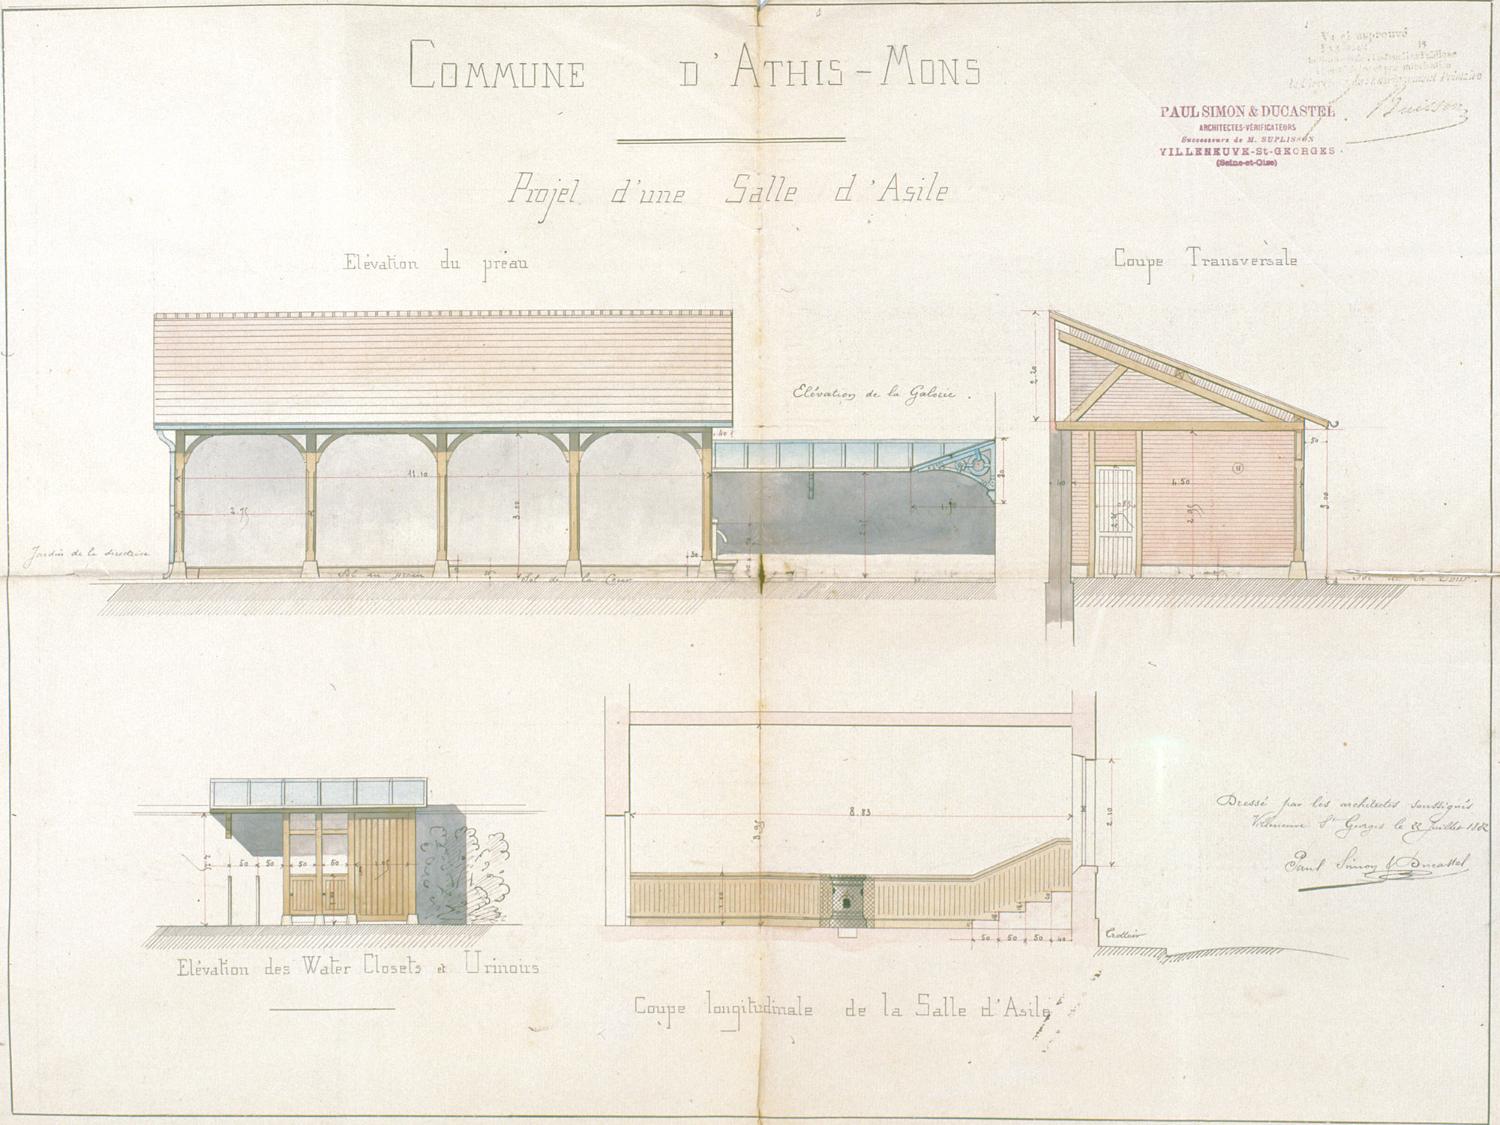 COMMUNE D'ATHIS-MONS
Projet d'une Salle d'Asile
Vu et approuvé
Buisson
PAUL SIMON & DUCASTEL
ARCHITECTES-VÉRIFICATEURS
Successeurs de M. SUPLISSON
VILLENEUVE-St-GEORGES
(Seine-et-Oise)
Elévation du préau
Coupe Transversale
Elévation de la Galerie.
11.10
3.00
Jardin de la directrice
Sol du préau
Sol de la Cour
2.20
50
40
4.50
3.00
Sol de la Cour.
50 50 50 60
Elévation des Water Closets et Urinoirs
8.83
2.10
50 50 50 40
Trottoir
Coupe longitudinale de la Salle d'Asile
Dressé par les architectes soussignés
Villeneuve St Georges le 22 Juillet 1882
Paul Simon & Ducastel